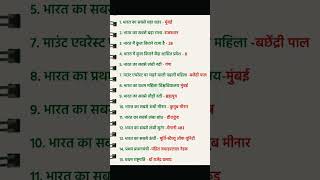 1. भारत का सबसे बड़ा शहर - मुंबई
2. भारत का सबसे बड़ा राज्य - राजस्थान
3. भारत में कुल कितने राज्य है - 28
4. भारत में कुल कितने केंद्र शासित प्रदेश - 8
5. भारत की सबसे लंबी नदी - गंगा
7. माउंट एवरेस्ट पर चढ़ने वाली पहली महिला - बछेंद्री पाल
8. भारत का प्रथम महिला विश्वविद्यालय मुंबई
9. भारत का सबसे चौड़ी नदी - ब्रह्मपुत्र
10. भारत का सबसे ऊंची मीनार - कुतुब मीनार
11. भारत का सबसे लंबा बांध - हीराकुंड
12. भारत का सबसे लंबी सुरंग -
13. भारत का सबसे ऊंची -
14. प्रथम प्रधानमंत्री - पंडित जवाहरलाल नेहरू
15. प्रथम राष्ट्रपति - डॉ राजेंद्र प्रसाद
5. भारत की सब
7. माउंट एवरेस्ट
महिला - बछेंद्री पाल
8. भारत का प्रथ
मुंबई
9. भारत का सब
10. भारत का सब
मीनार
11. भारत का सब